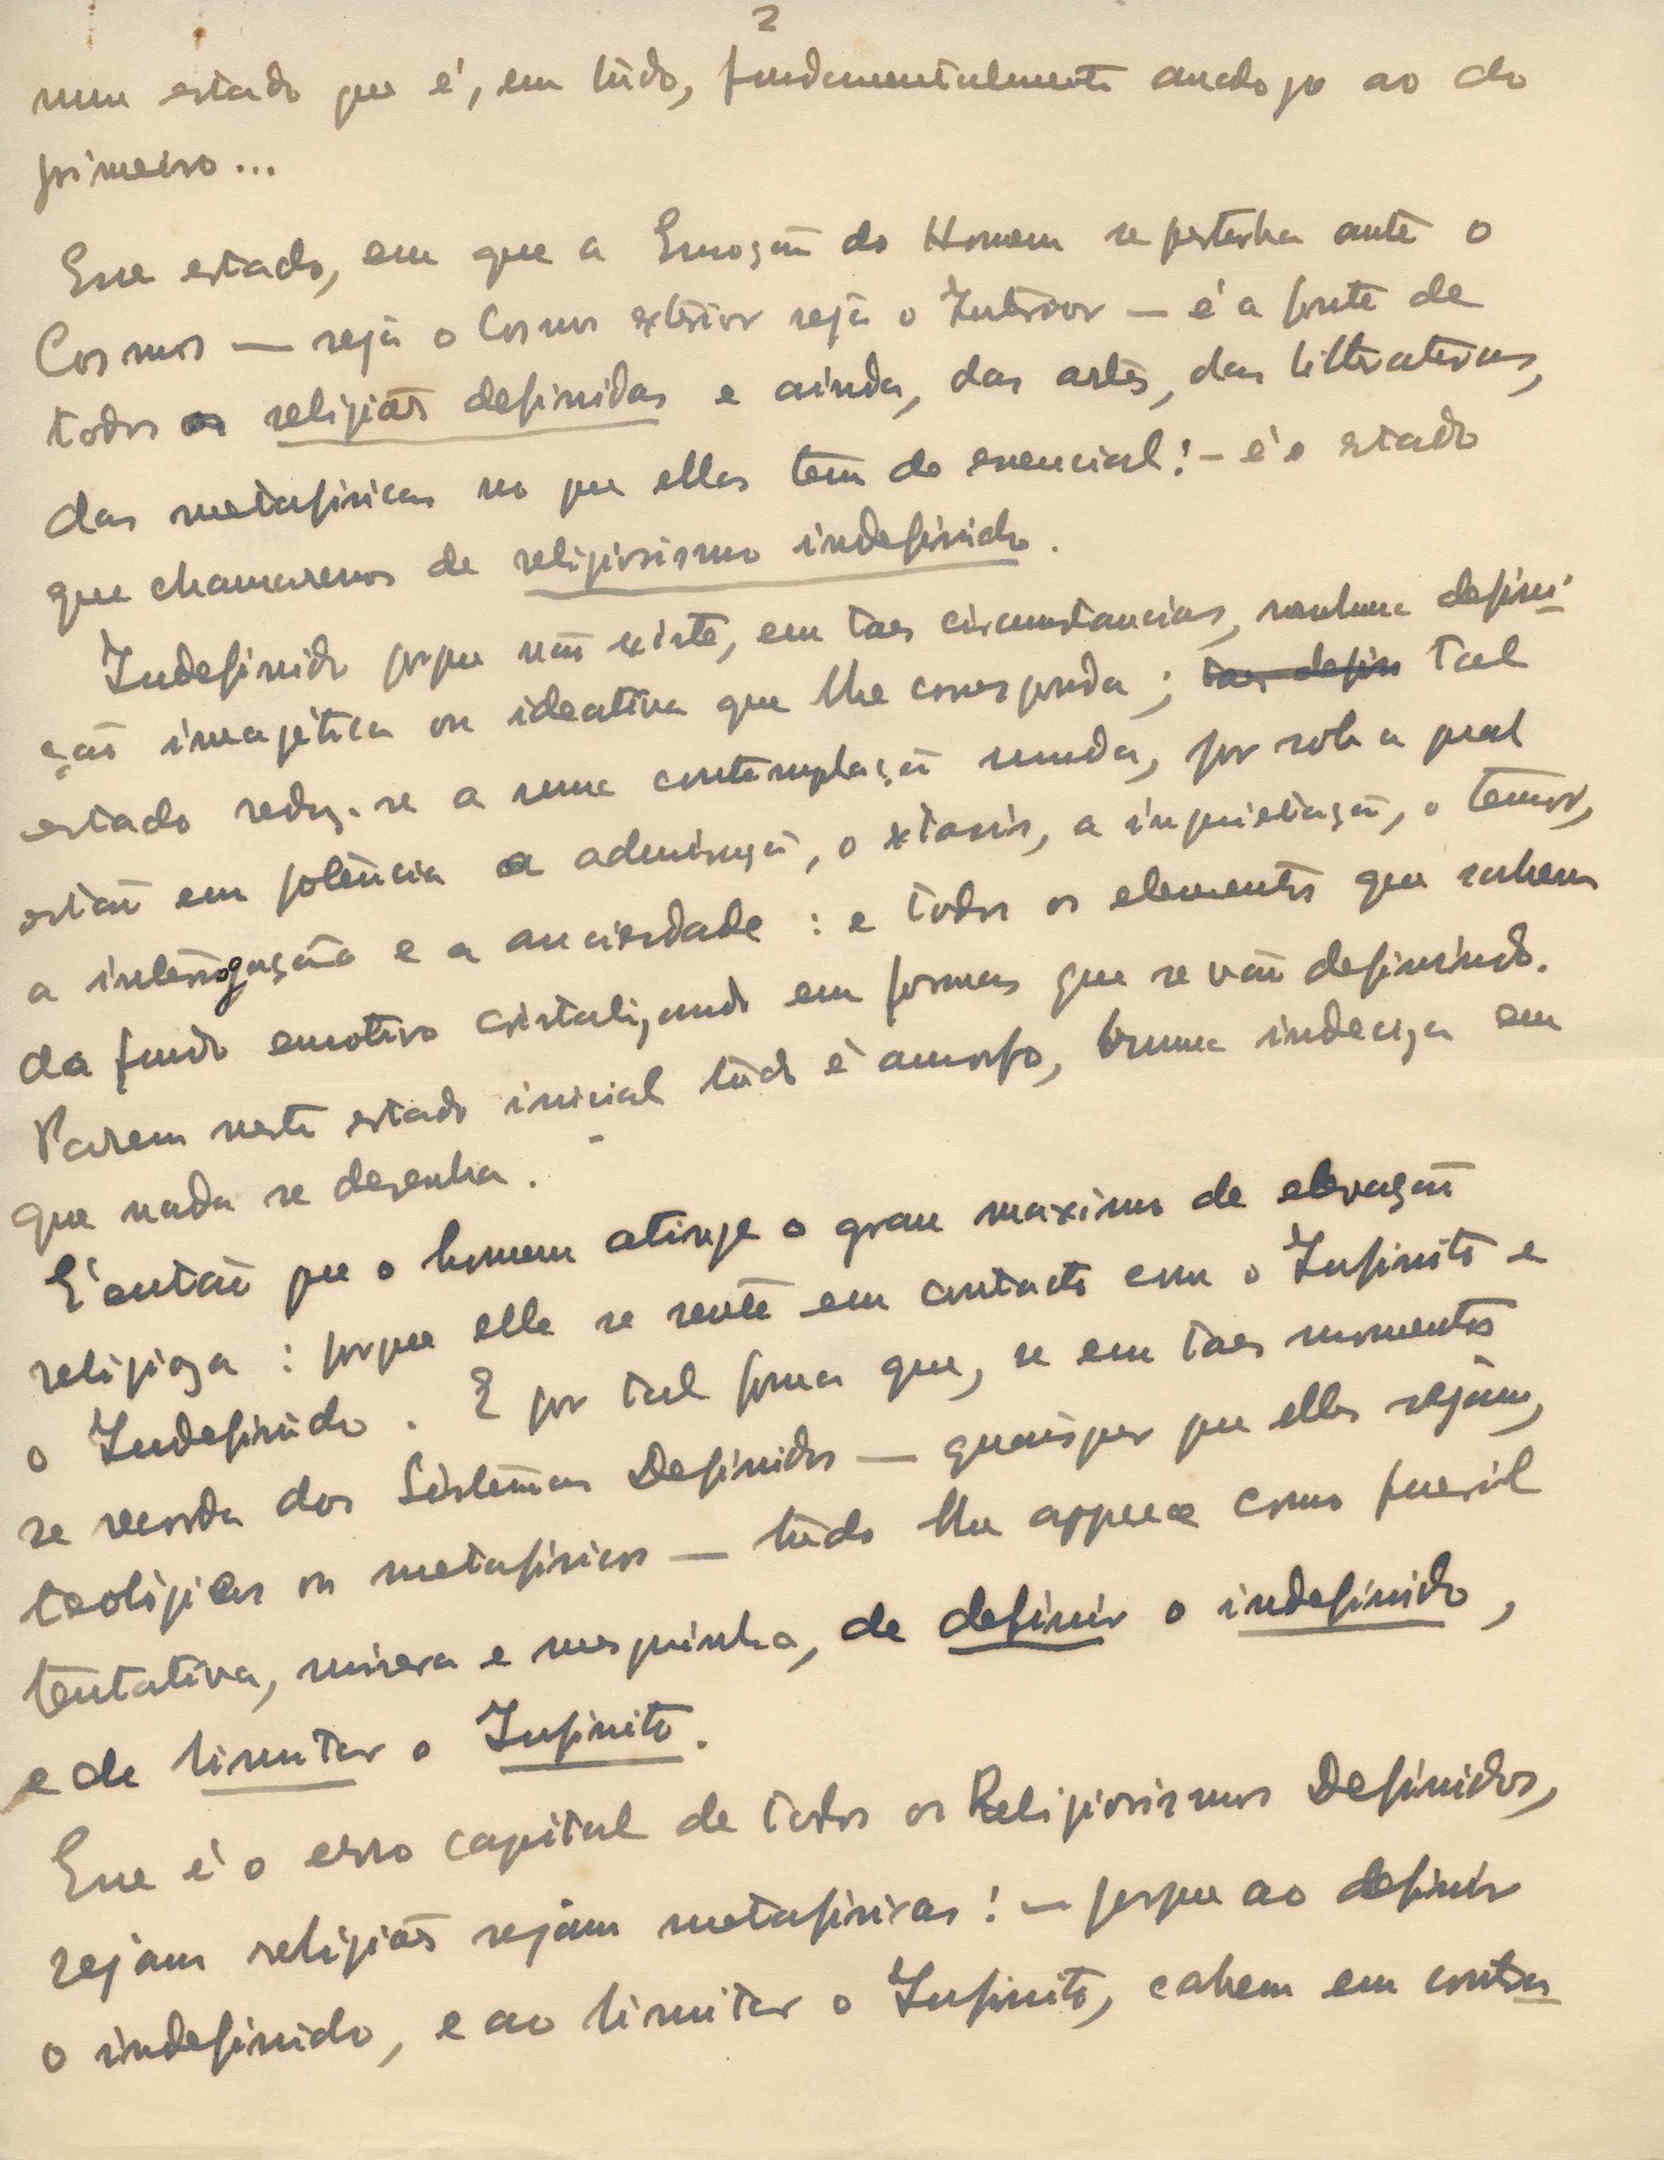 2
num estado que é, em tudo, fundamentalmente analogo ao do
primeiro...
Esse estado, em que a Emoção do Homem se posterna ante o
Cosmos — seja o Cosmos exterior seja o Interior — é a fonte de
todos as religiões definidas e ainda, das artes, das litteraturas,
das metafisicas no que ellas tem de essencial! - é o estado
que chamaremos de religiosismo indefinido.
Indefinido porque não existe, em taes circumstancias, nenhuma defini-
ção imagética ou ideativa que lhe corresponda; taes defin tal
estado reduz-se a uma contemplação muda, por sob a qual
estão em potência a admiração, o extasis, a inquietação, o temor,
a interrogação e a anciedade : e todos os elementos que sahem
do fundo emotivo cristalizando em formas que se vão definindo.
Porem neste estado inicial tudo é amorfo, bruma indeciza em
que nada se dezenha.
É então que o homem atinge o grau maximo de elevação
religioza : porque elle se sente em contacto com o Infinito e
o Indefinido. E por tal forma que, se em taes momentos
se recorda dos Sistemas Definidos — quaisquer que elles sejam,
teológicos ou metafisicos — tudo lhe apparece como pueril
tentativa, misera e mesquinha, de definir o indefinido,
e de limitar o Infinito.
Esse é o erro capital de todos os Religiosismos Definidos,
sejam religiões sejam metafisicas! — porque ao definir
o indefinido, e ao limitar o Infinito, cahem em contra-